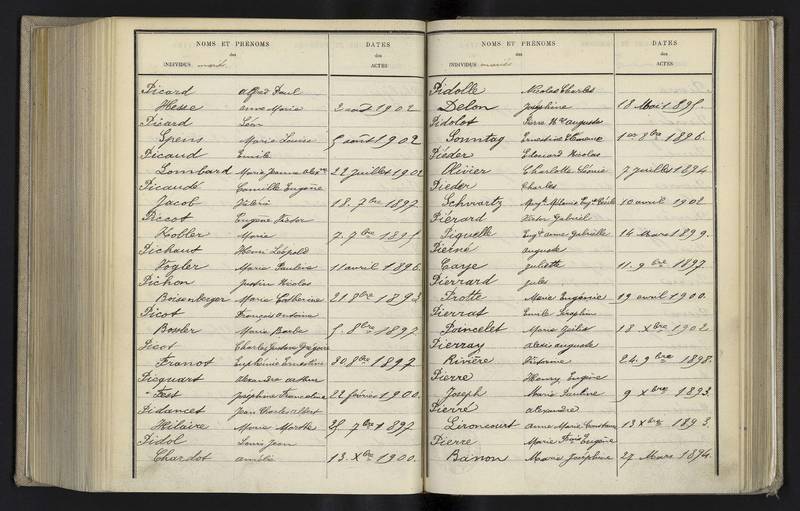 NOMS ET PRÉNOMS
des
INDIVIDUS
DATES
des
ACTES
Picard Alfred Paul
Hesse Anne Marie 2 août 1902
Picard Léon
Spens Marie Louise 5 août 1902
Picaud Emile
Lombard Marie Jeanne 22 juillet 1902
Picaudé Camille Eugène
Jacob Valérie 18. 7bre 1897
Piccot Eugène Victor
Kobler Marie 7. 7bre 1895
Pichaut Henri Léopold
Vogler Marie Pauline 11 avril 1896
Pichon Justin Nicolas
Boisenberger Marie Catherine 21 9bre 1893
Picot François Antoine
Bossler Marie Barbe 5. 8bre 1897
Picot Charles Gustave Grégoire
Franot Euphémie Ernestine 30. 8bre 1897
Picquart Alexandre Arthur
Fest Joséphine Francoline 22 février 1900
Pidancet Jean Charles Albert
Hilaire Marie Marthe 25 7bre 1897
Pidol Louis Jean
Chardot Amélie 13. Xbre 1900.
NOMS ET PRÉNOMS
des
INDIVIDUS mariés
DATES
des
ACTES
Pidolle Nicolas Charles
Delon Joséphine 18 Mai 1895
Pidolot Pierre Auguste
Sonntag Ernestine 1er 8bre 1896.
Piéder Edouard Nicolas
Olivier Charlotte Léonie 7 juillet 1894
Pieder Charles
Schwartz Mélanie 10 avril 1902
Piérard Victor Gabriel
Piquelle Anne Gabrielle 14 Mars 1899.
Pierné Auguste
Caye Juliette 11. 9bre 1897.
Pierrard Jules
Trotte Marie Eugénie 19 avril 1900.
Pierrat Emile Séraphin
Pancelet Marie Julie 18. Xbre 1902
Pierray Alexis Auguste
Rivière Victorine 24. 9bre 1898.
Pierre Henry Eugène
Joseph Marie Pauline 9 Xbre 1893.
Pierré Alexandre
Géroncourt Anne Marie Constance 13 Xbre 1893.
Pierre Marie Eugène
Banon Marie Joséphine 27 Mars 1894.